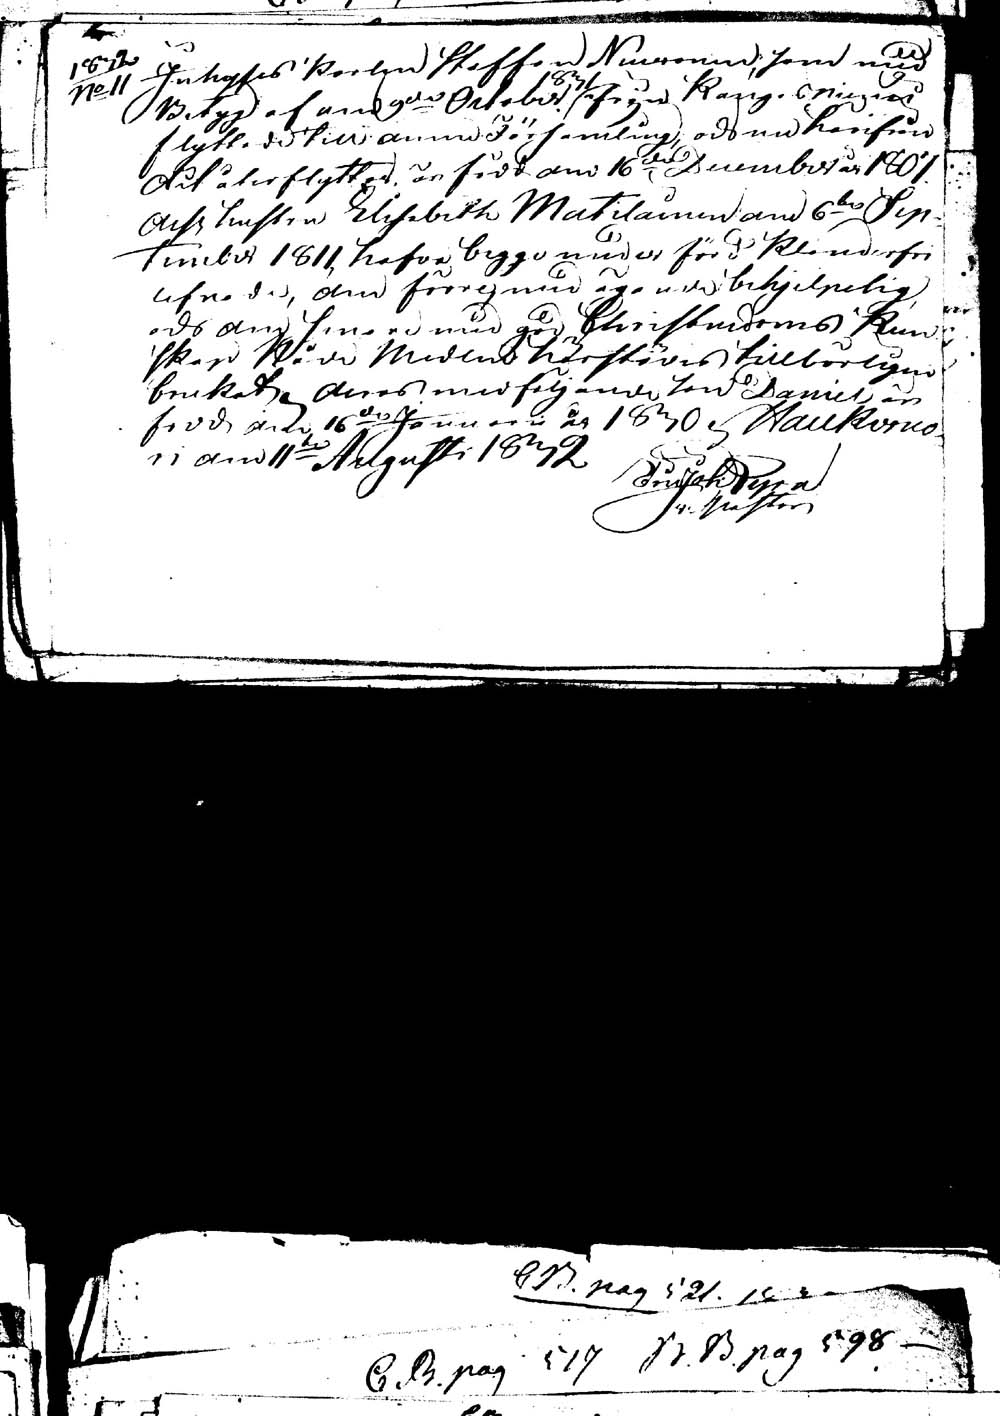 1832
No 11
Inhyses Karlen Staffan Nuutinen, som med
Betyg af den 9de October 1831 ifrån Kangasniemi
flyttade till denna Församling, och nu härifrån
dit återflyttar, är född den 16de December år 1807.
dess hustru Elisabeth Matilainen den 6te Sep-
tember 1811, hafva begge under förd Klanderfri
lefnad, den förre med ägande behjelpelig,
och den senare med god Christendoms Kun-
skap Både Medens härstädes tillbörligen
brukat, deras medföljande son Daniel är
född den 16de Januari år 1830, Haukivuo-
ri den 11te Augusti 1832
Pastor
C.B. pag 521.
C.B. pag 517 N.B. pag 598